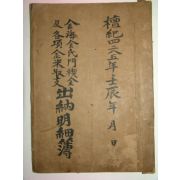 檀紀四二八五年壬辰年 月 日
金海金氏門錢金
及各項金米收支
出納明細簿